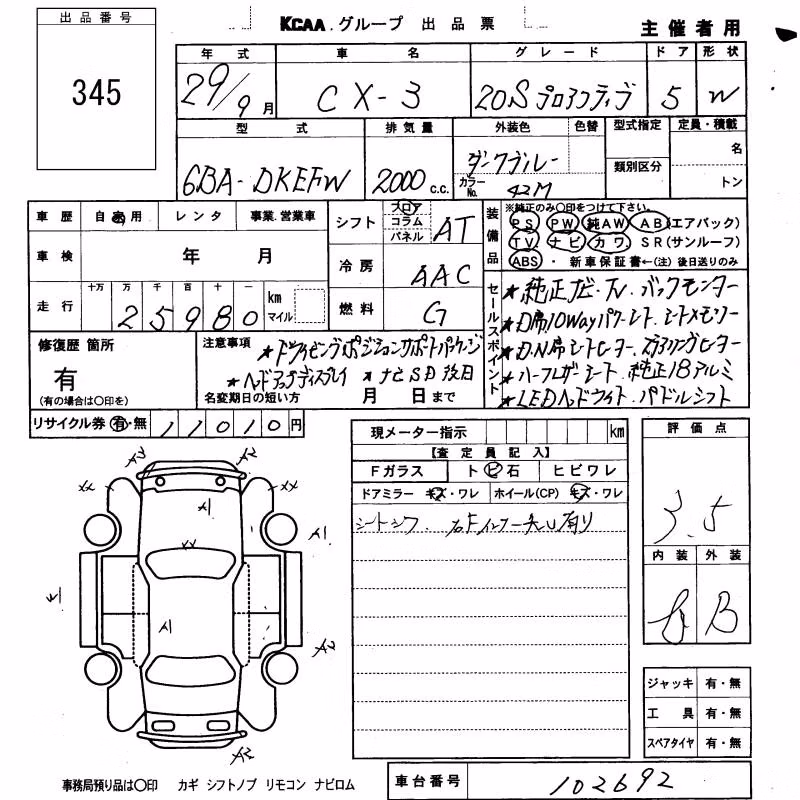 出品番号
345
KCAA.グループ 出品票
主催者用
年式 車名 グレード ドア 形状
29/9月 CX-3 20S プロアクティブ 5 W
型式 排気量 外装色 色替 型式指定 定員・積載
6BA-DKEFW 2000c.c. ダークブルー カラーNo. 42M 類別区分 名 トン
車歴 自家用 レンタ 事業.営業車
車検 年 月
走行 十万 万 千 百 十 一 km マイル
25980
シフト フロア コラム パネル AT
冷房 AAC
燃料 G
装備品
※純正のみ〇印をつけて下さい。
PS PW 純AW AB(エアバック)
TV ナビ カワ SR(サンルーフ)
ABS ・ 新車保証書←(注)後日送りのみ
セールスポイント
★純正ナビ・TV.バックモンター
★D席10Wayパワーシート.シートメモリー
★D.N席シートヒーター.ステアリングヒーター
★ハーフレザーシート.純正18アルミ
★LEDヘッドライト.パドルシフト
修復歴 箇所
有
(有の場合は〇印を)
注意事項
★ドライビングポジションサポートパッケージ
★ヘッドアップディスプレイ ★ナビSD後日
名変期日の短い方 月 日まで
リサイクル券 有・無 11010円
現メーター指示 km
【査定員記入】
Fガラス ト ビ 石 ヒビワレ
ドアミラー キズ・ワレ ホイール(CP) キズ・ワレ
シートシワ. 右Fインナー錆有り
評価点
3.5
内装 外装
B B
ジャッキ 有・無
工具 有・無
スペアタイヤ 有・無
A2
XX XX
A1
A1
XX
A1
A2
A2
事務局預り品は〇印 カギ シフトノブ リモコン ナビロム
車台番号 102692